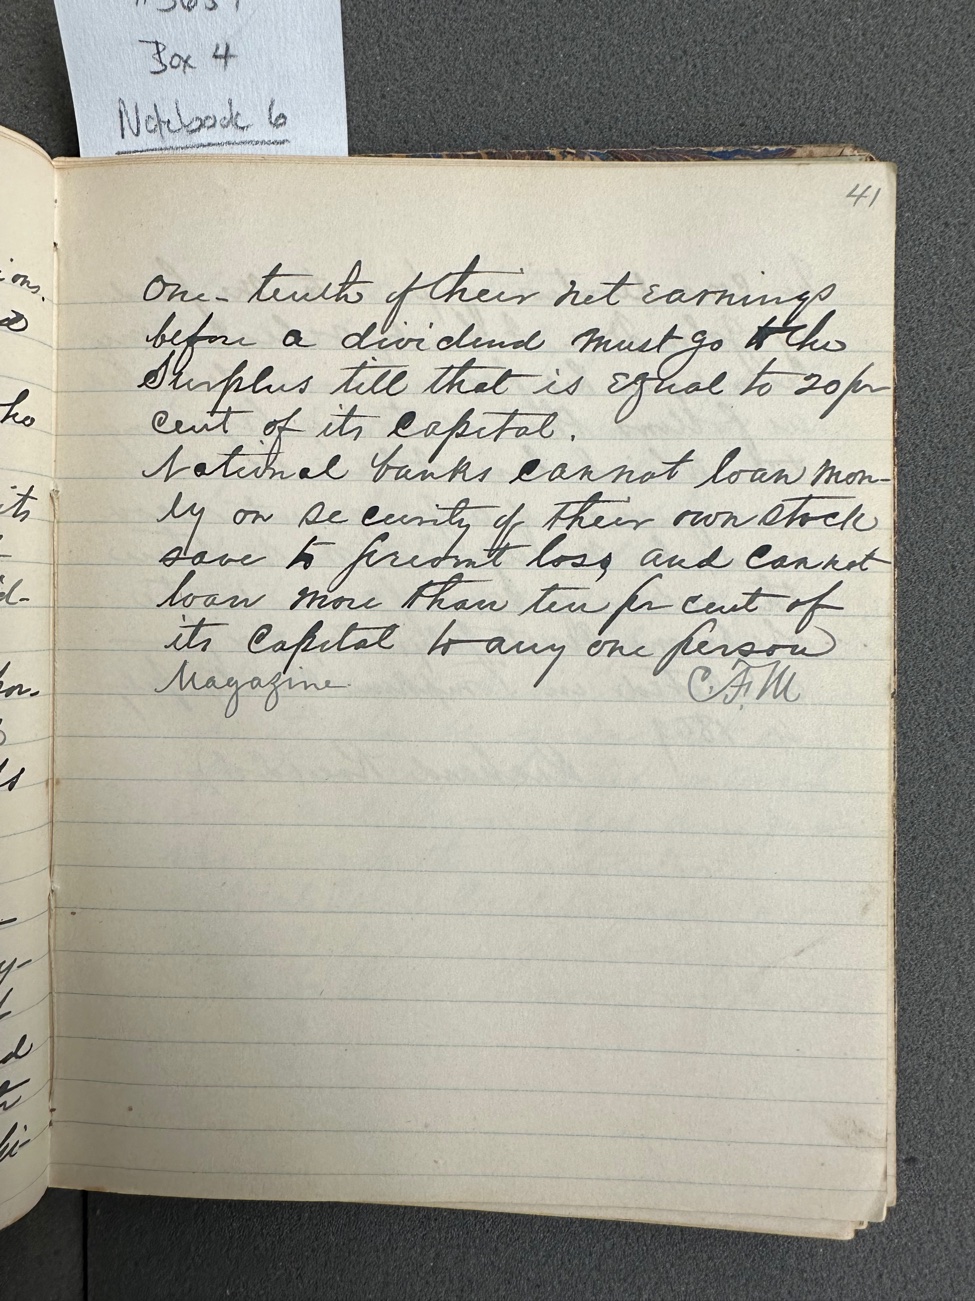 Box 4
Notebook 6
41
One-tenth of their net earnings
before a dividend must go to the
Surplus till that is equal to 20 per
cent of its capital.
National banks cannot loan mon-
ey on security of their own stock
save to prevent loss, and cannot
loan more than ten per cent of
its capital to any one person
Magazine. C.F.M
ions.
ho
its
d-
s
y-
d